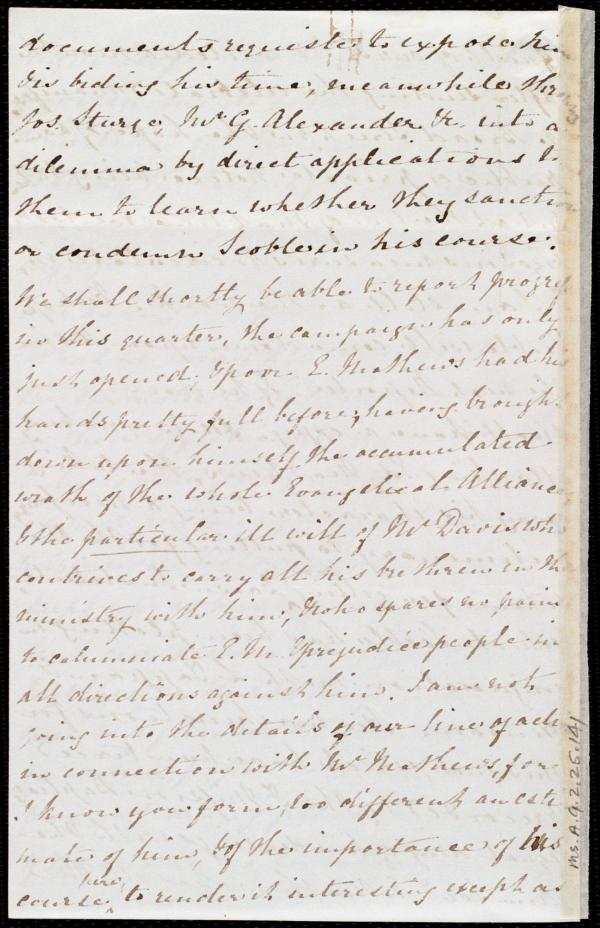 documents requisite to expose him
is biding his time, meanwhile thr
Jos. Sturge, Mr G. Alexander &c. into a
dilemma by direct applications to
them to learn whether they sanction
or condemn Scoble in his course.
We shall shortly be able to report progress
in this quarter, the campaign has only
just opened, & poor E. Mathews had his
hands pretty full before; having brought
down upon himself the accumulated
wrath of the whole Evangelical Alliance
& the particular ill will of Mr Davis who
contrives to carry all his brethren in the
ministry with him, & who spares no pains
to calumniate E. M. & prejudice people in
all directions against him. I am not
going into the details of our line of acti
in connection with Mr Mathews, for
I know you form too different an esti
mate of him, & of the importance of his
course here, to render it interesting except as
Ms. A. 9. 2. 26. 14